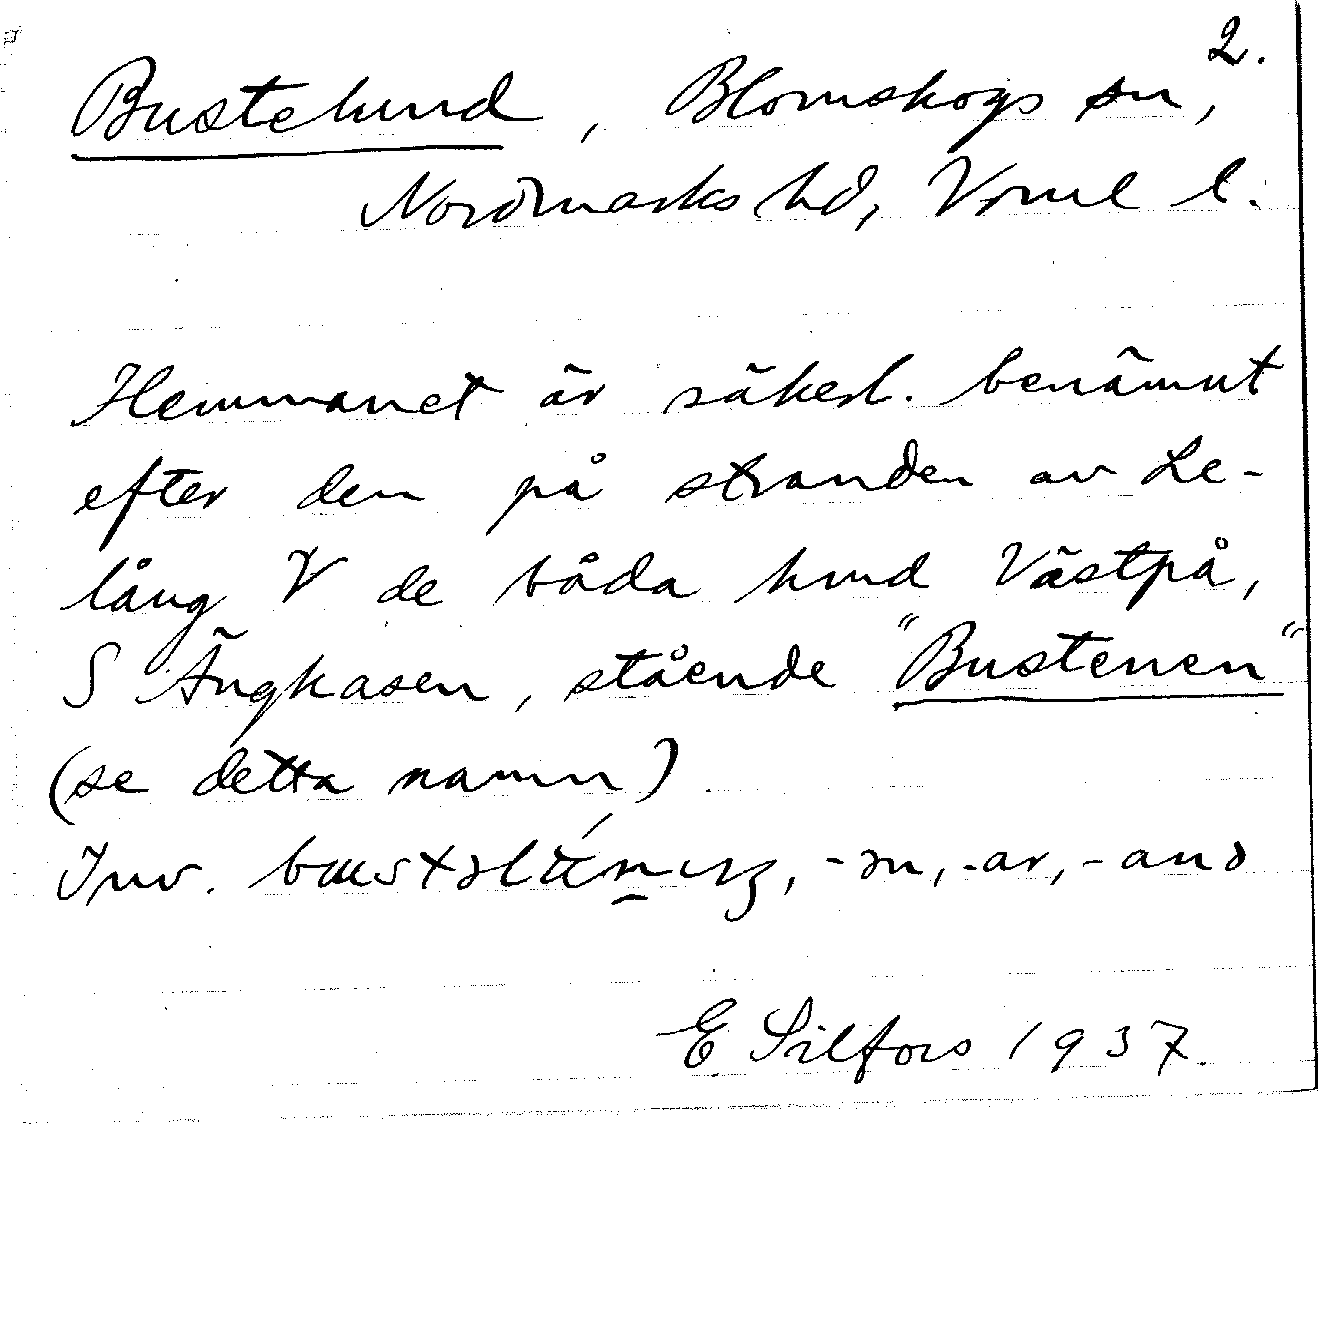 2.
Bustelund, Blomskogs sn,
Nordmarks hd, Vrml l.
Hemmanet är säkerl. benämnt
efter den på stranden av Le-
lång V de båda hmd Västpå,
S Ängkasen, stående "Bustenen"
(se detta namn)
Inv. -ər, -ar, -anə
E Silfors 1937.